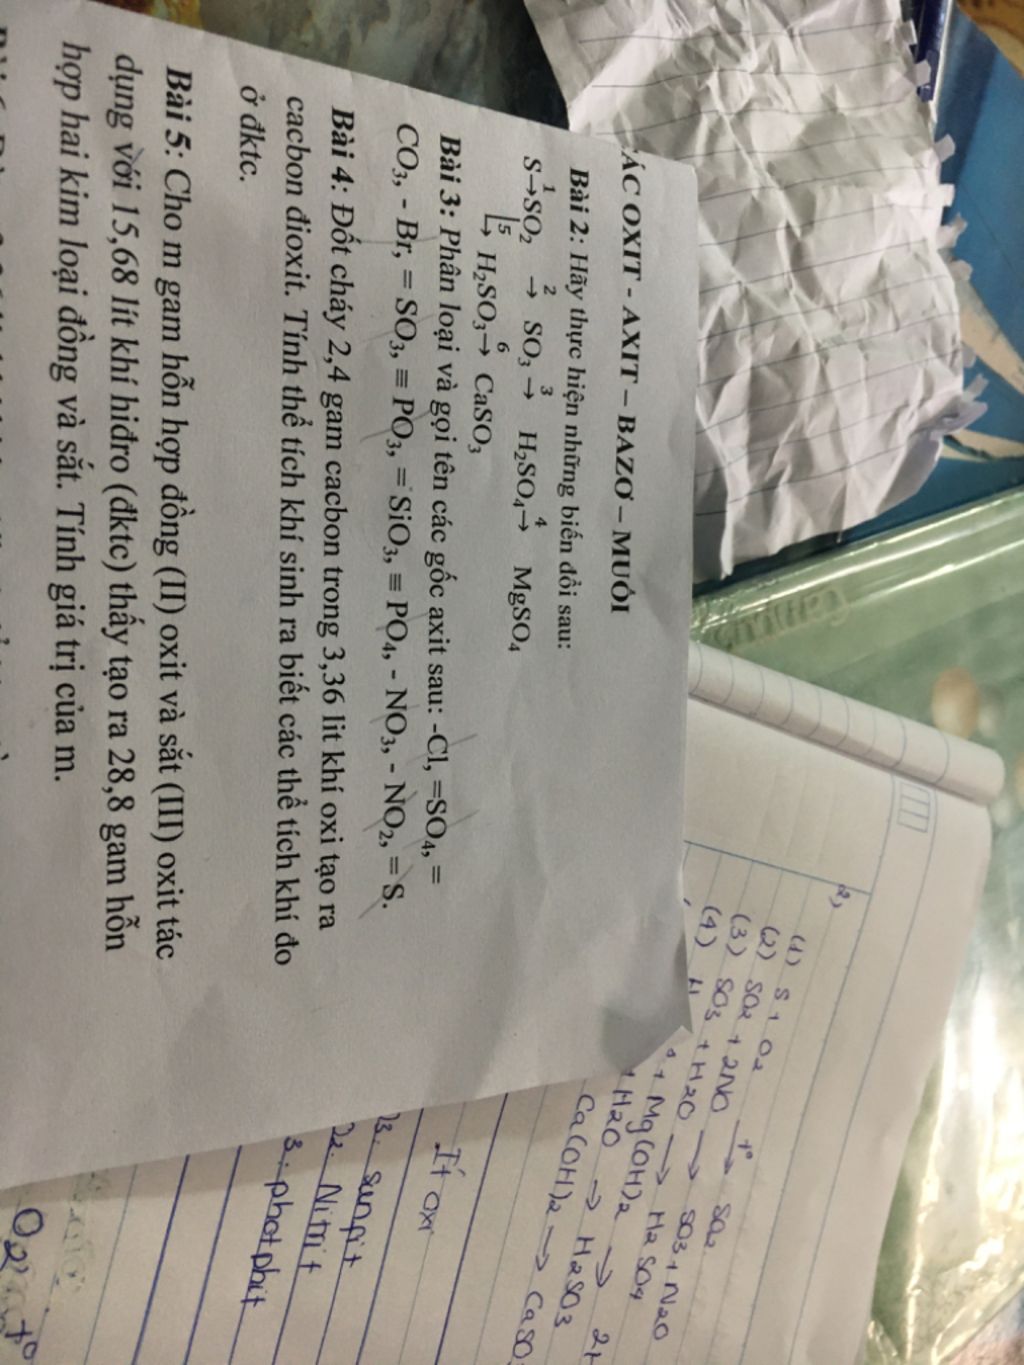 ÁC OXIT - AXIT – BAZƠ – MUỐI
Bài 2: Hãy thực hiện những biến đổi sau:
S 1→ SO₂ 2→ SO₃ 3→ H₂SO₄ 4→ MgSO₄
5→ H₂SO₃ 6→ CaSO₃
Bài 3: Phân loại và gọi tên các gốc axit sau: -Cl, =SO₄, =
CO₃, - Br, = SO₃, ≡ PO₃, = SiO₃, ≡ PO₄, - NO₃, - NO₂, = S.
Bài 4: Đốt cháy 2,4 gam cacbon trong 3,36 lit khí oxi tạo ra
cacbon đioxit. Tính thể tích khí sinh ra biết các thể tích khí đo
ở đktc.
Bài 5: Cho m gam hỗn hợp đồng (II) oxit và sắt (III) oxit tác
dụng với 15,68 lít khí hiđro (đktc) thấy tạo ra 28,8 gam hỗn
hợp hai kim loại đồng và sắt. Tính giá trị của m.
2,
(1) S + O₂ t°→ SO₂
(2) SO₂ + 2NO → SO₃ + N₂O
(3) SO₃ + H₂O → H₂SO₄
(4) H + Mg(OH)₂ → 2H
+ H₂O → H₂SO₃
Ca(OH)₂ → CaSO₃
Ít oxi
O₃: sunpit
O₂: Nitrit
3: photphit
O₂ t°